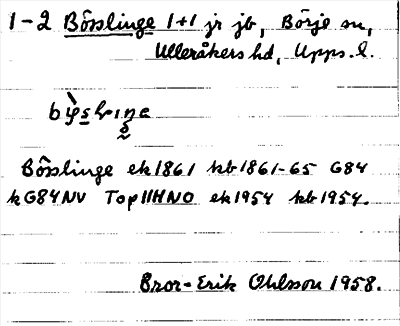 1-2 Bösslinge 1+1 jr jb, Börje sn,
Ulleråkers hd, Upps. l.
Bösslinge ek 1861 kb 1861-65 G84
k G84NV Top 11HNO ek 1954 kb 1954.
Bror-Erik Ohlsson 1958.